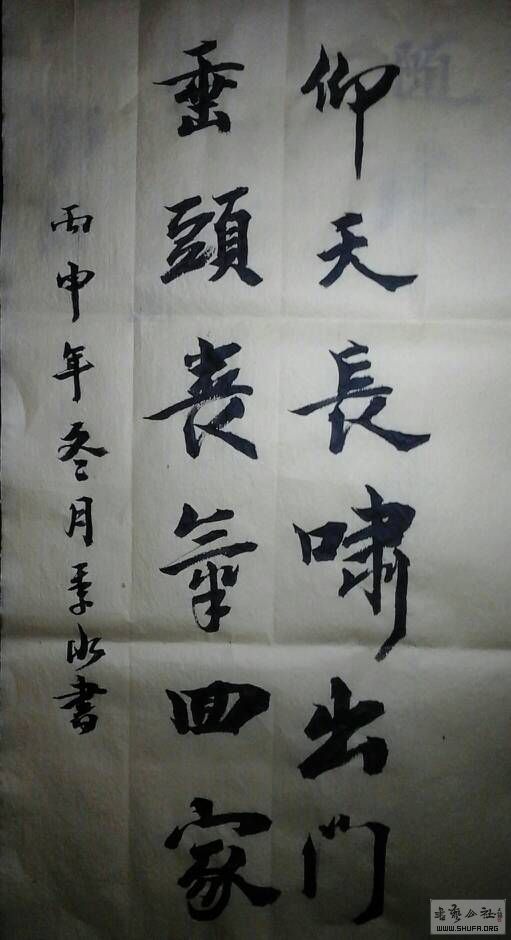 仰天長嘯出門
垂頭喪氣回家
丙申年冬月季水書
書藝公社
WWW.SHUFA.ORG